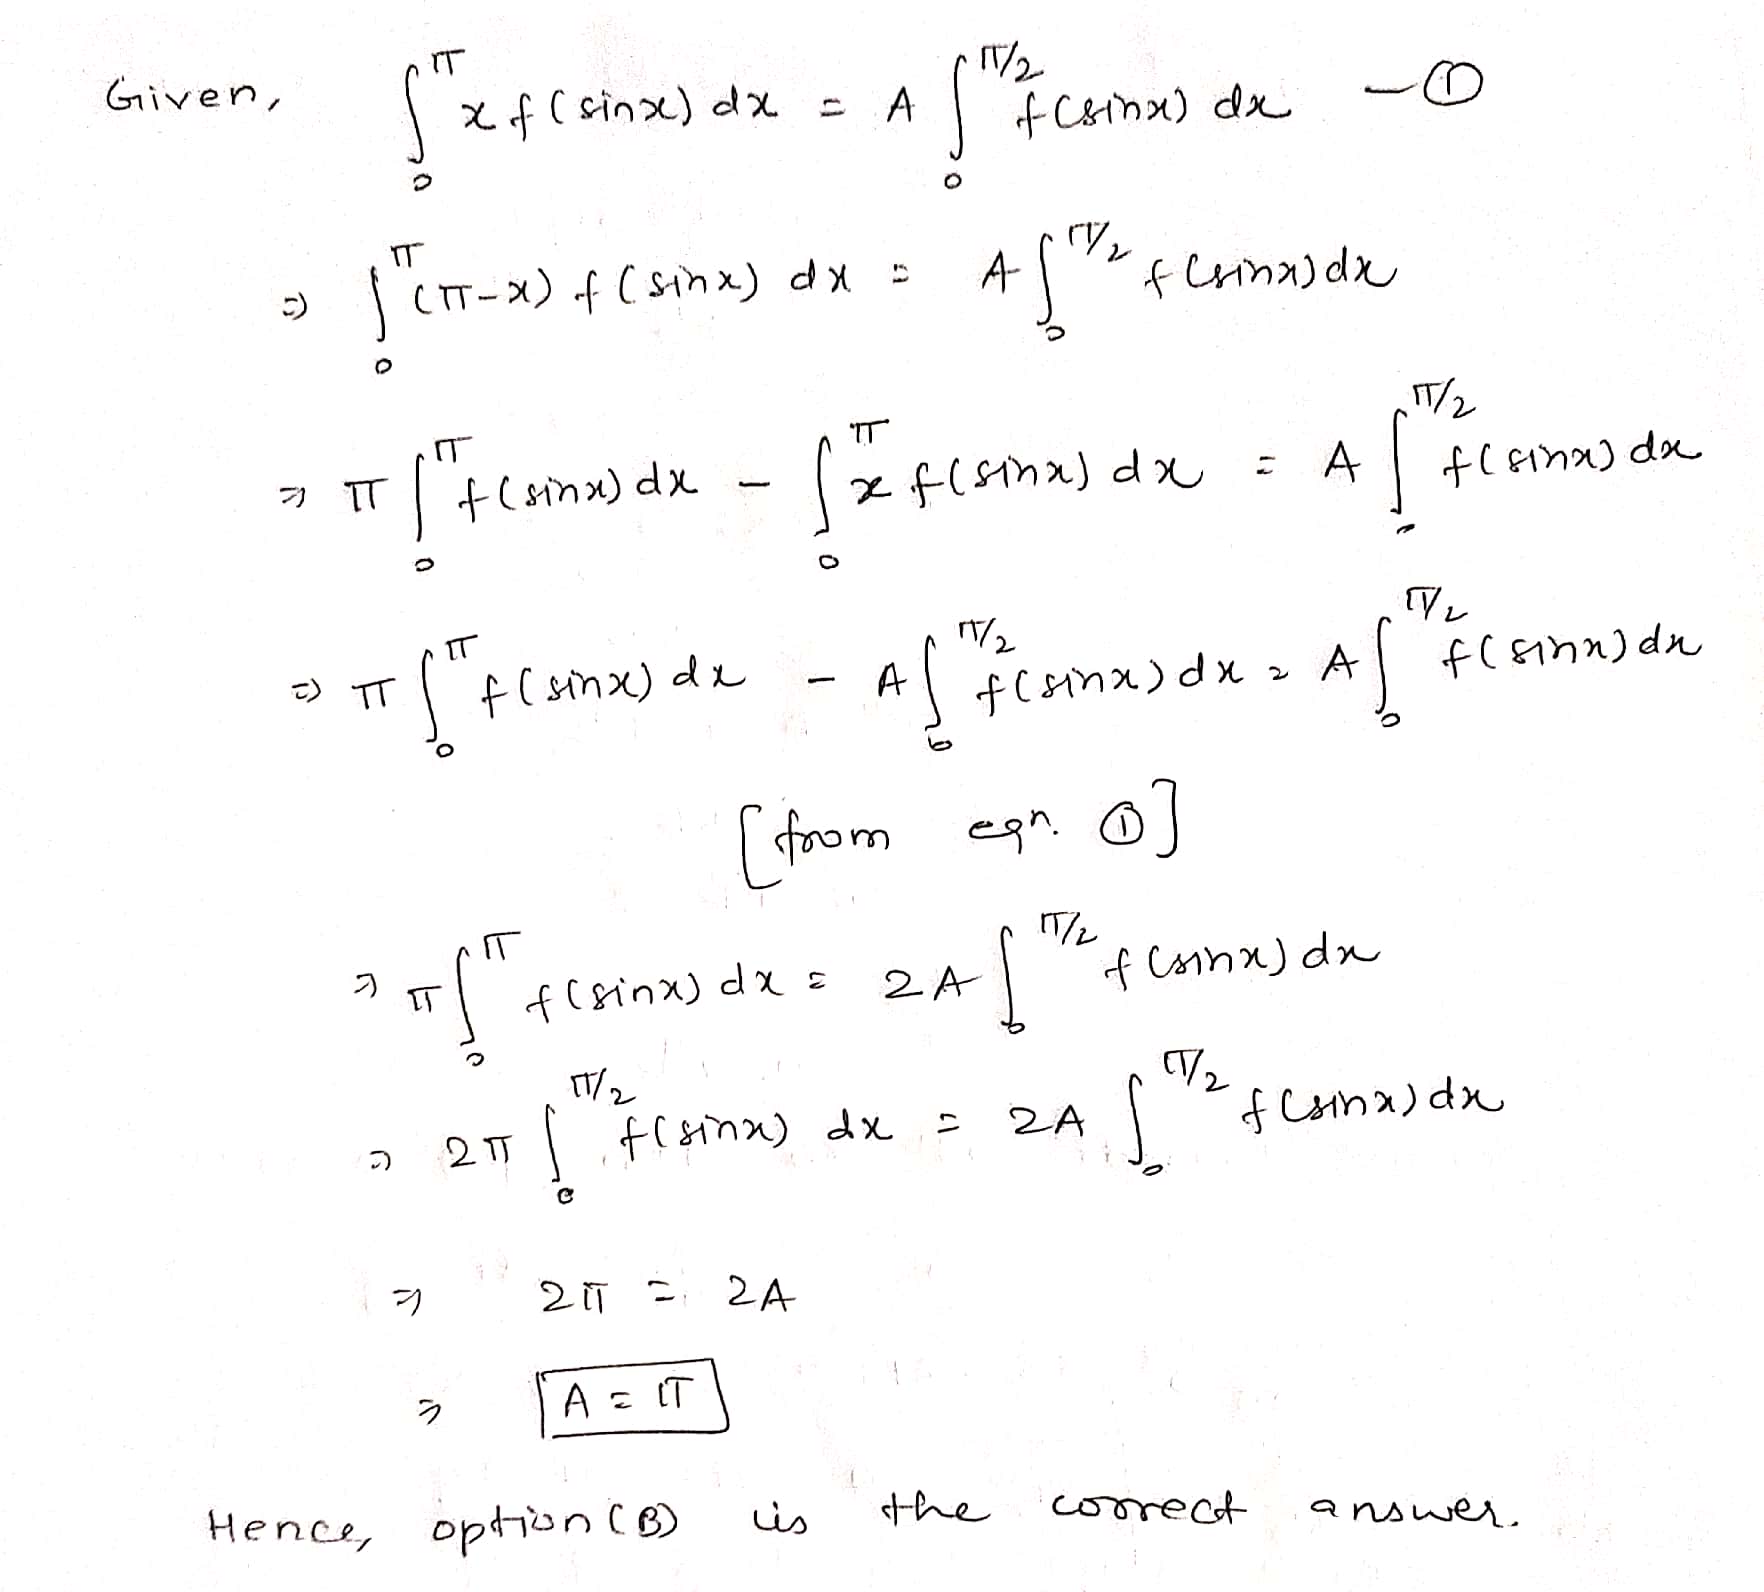 Given, ∫₀^π x f(sinx) dx = A ∫₀^π/2 f(sinx) dx —①
⇒ ∫₀^π (π-x) f(sinx) dx = A ∫₀^π/2 f(sinx) dx
⇒ π ∫₀^π f(sinx) dx - ∫₀^π x f(sinx) dx = A ∫₀^π/2 f(sinx) dx
⇒ π ∫₀^π f(sinx) dx - A ∫₀^π/2 f(sinx) dx = A ∫₀^π/2 f(sinx) dx
[from eqn. ①]
⇒ π ∫₀^π f(sinx) dx = 2A ∫₀^π/2 f(sinx) dx
⇒ 2π ∫₀^π/2 f(sinx) dx = 2A ∫₀^π/2 f(sinx) dx
⇒ 2π = 2A
⇒ A = π
Hence, option (B) is the correct answer.